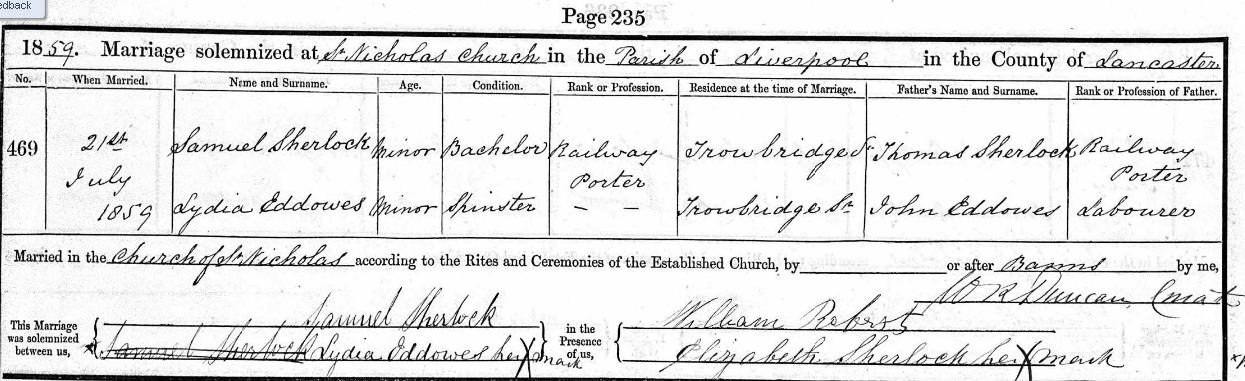 edback
Page 235
1859. Marriage solemnized at St Nicholas Church in the Parish of Liverpool in the County of Lancaster
No. When Married. Name and Surname. Age. Condition. Rank or Profession. Residence at the time of Marriage. Father's Name and Surname. Rank or Profession of Father.
469 21st July 1859 Samuel Sherlock Minor Bachelor Railway Porter Trowbridge St Thomas Sherlock Railway Porter
Lydia Eddowes Minor Spinster – – Trowbridge St John Eddowes Labourer
Married in the Church of St Nicholas according to the Rites and Ceremonies of the Established Church, by or after Banns by me,
W R Duncan Curate
This Marriage was solemnized between us, Samuel Sherlock in the Presence of us, William Roberts
x Samuel Sherlock Lydia Eddowes her X mark Elizabeth Sherlock her X mark